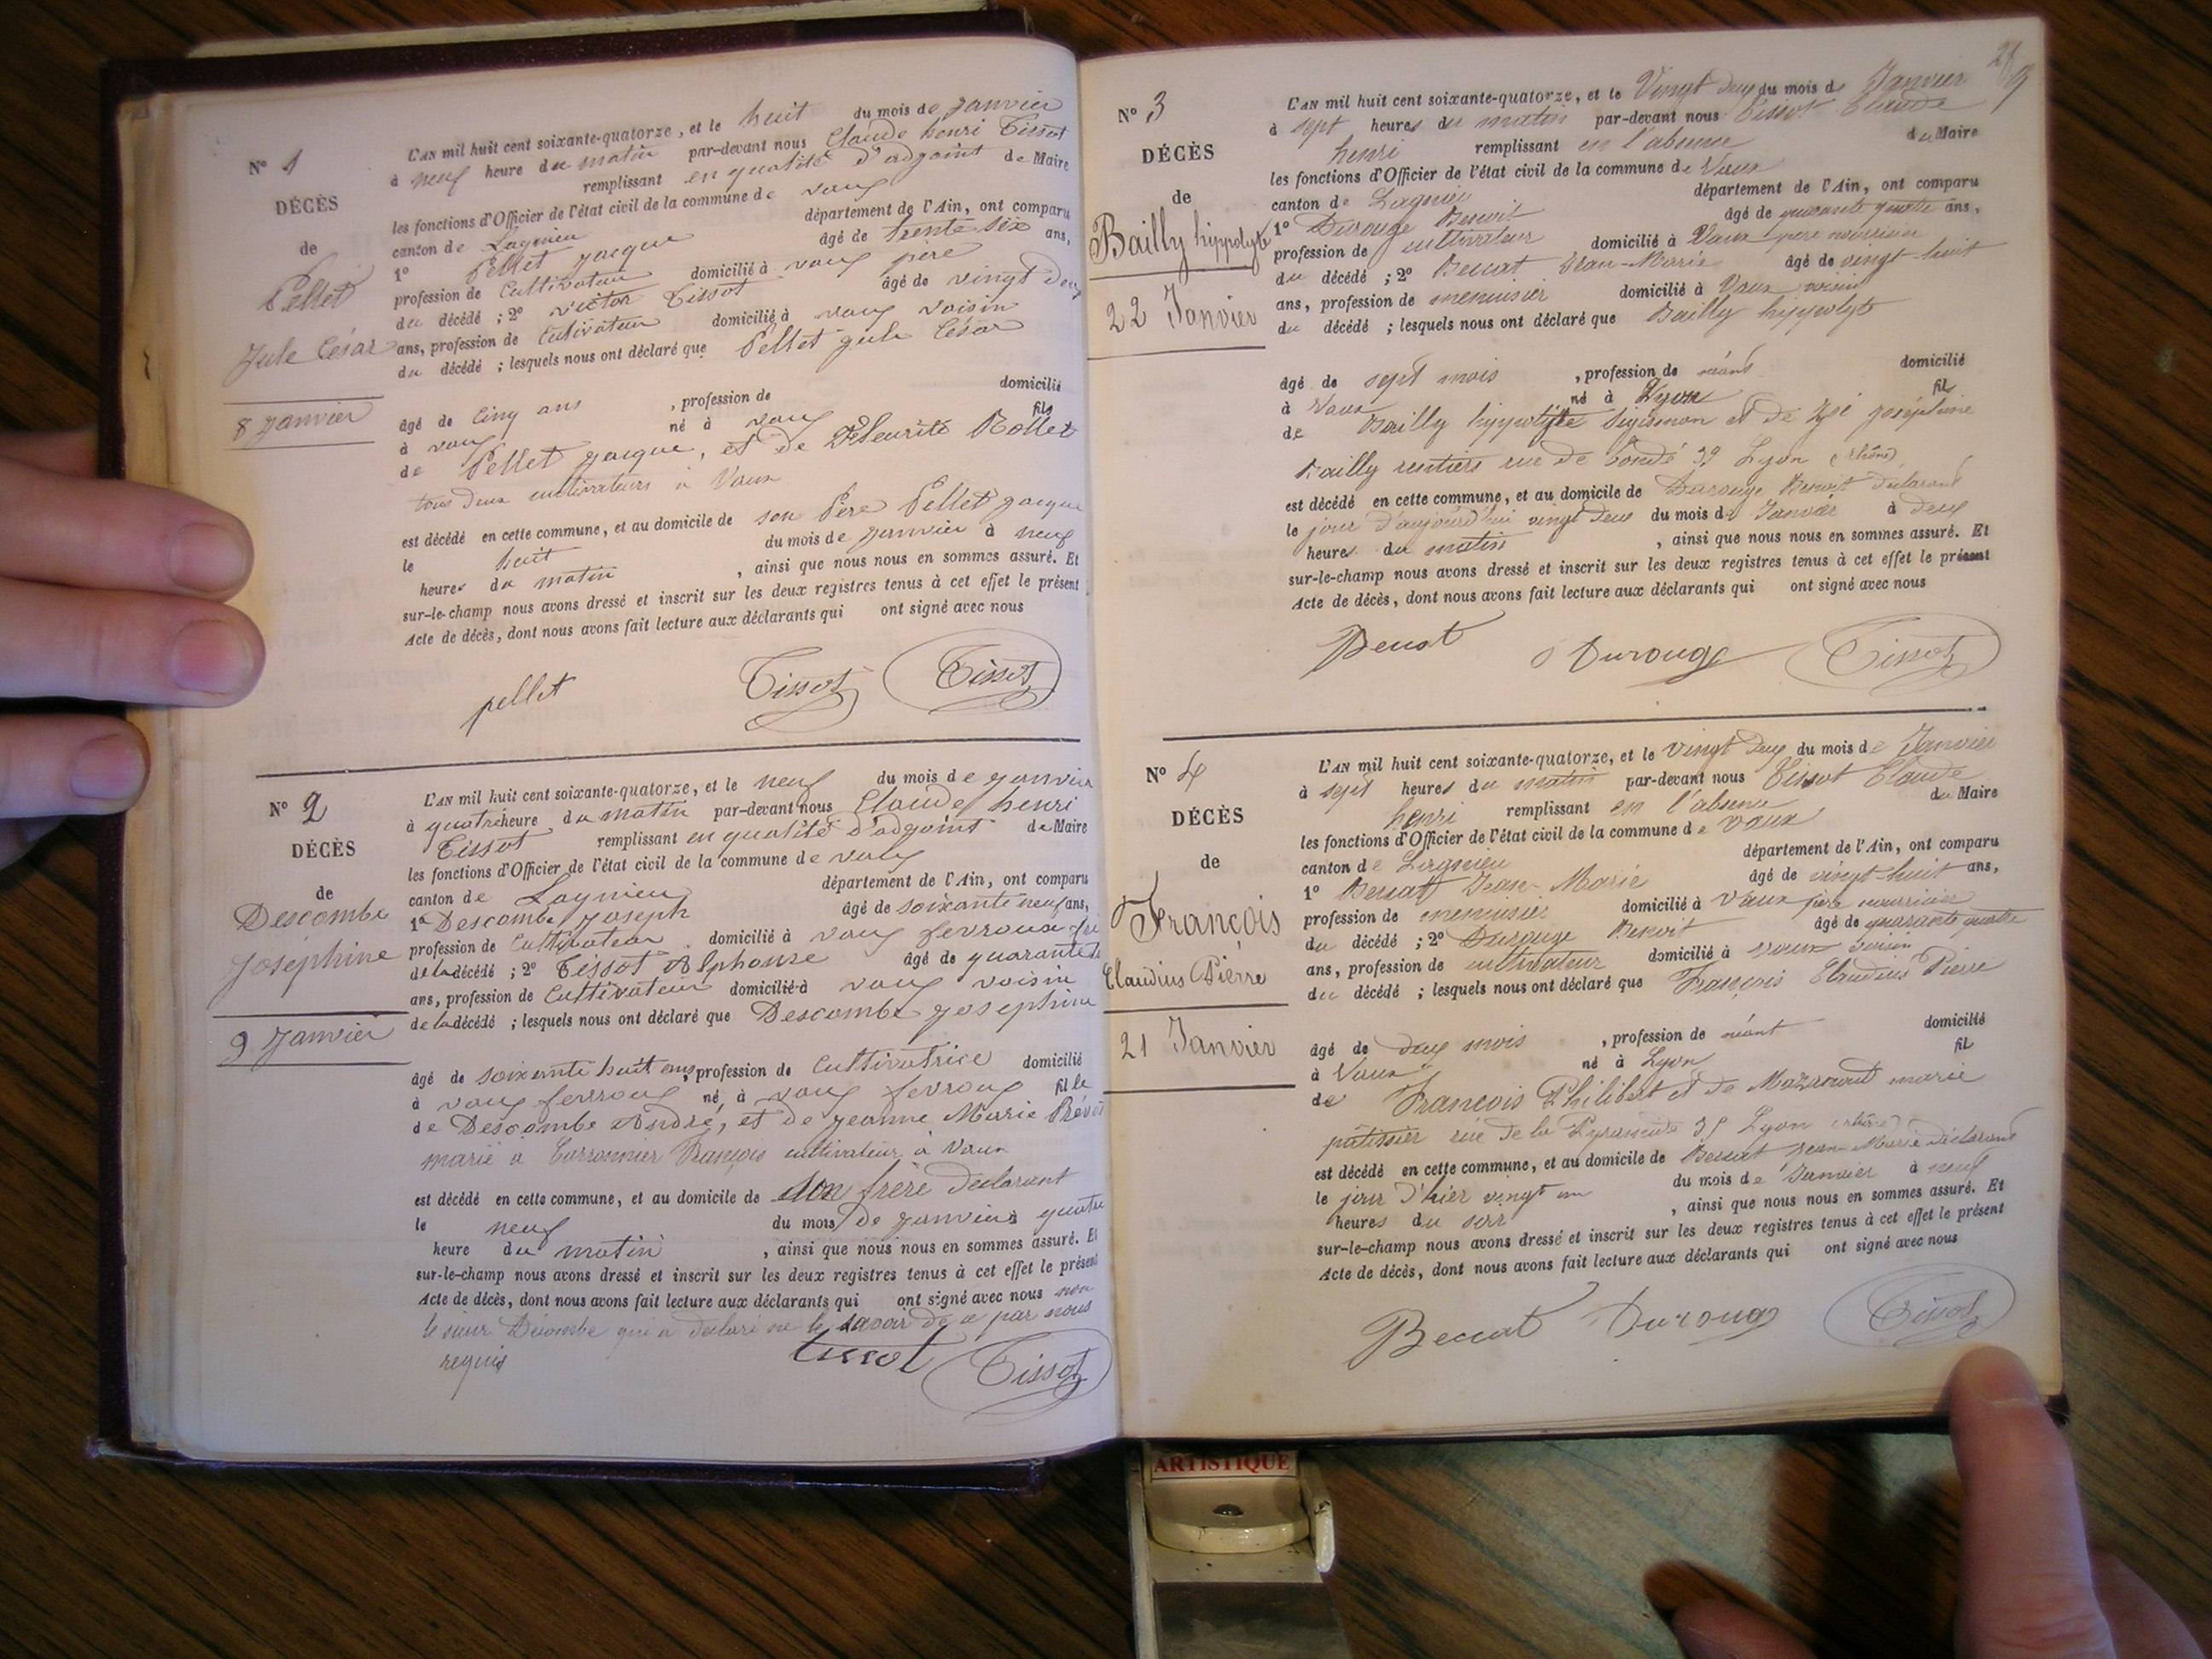 N° 1
DÉCÈS
de
Pellet
Jule César
8 Janvier
L'AN mil huit cent soixante-quatorze, et le huit du mois de Janvier
à neuf heure du matin par-devant nous Claude henri Tissot
remplissant en qualité d'adjoint de Maire
les fonctions d'Officier de l'état civil de la commune de vaux
canton de Lagnieu département de l'Ain, ont comparu
1° Pellet jacque âgé de trente six ans,
profession de Cultivateur domicilié à vaux père
du décédé ; 2° victor Tissot âgé de vingt deux
ans, profession de Cultivateur domicilié à vaux voisin
du décédé ; lesquels nous ont déclaré que Pellet jule César
âgé de Cinq ans , profession de domicilié
à vaux né à vaux fils
de Pellet jacque, et de Fleurité Rollet
tous deux cultivateurs à Vaux
est décédé en cette commune, et au domicile de son Père Pellet jacque
le huit du mois de janvier à neuf
heures du matin , ainsi que nous nous en sommes assuré. Et
sur-le-champ nous avons dressé et inscrit sur les deux registres tenus à cet effet le présent
Acte de décès, dont nous avons fait lecture aux déclarants qui ont signé avec nous
pellet Tissot Tissot
N° 2
DÉCÈS
de
Descombe
Joséphine
9 Janvier
L'AN mil huit cent soixante-quatorze, et le neuf du mois de janvier
à quatre heure du matin par-devant nous Claude henri
Tissot remplissant en qualité d'adjoint de Maire
les fonctions d'Officier de l'état civil de la commune de vaux
canton de Lagnieu département de l'Ain, ont comparu
1° Descombe joseph âgé de soixante neuf ans,
profession de Cultivateur domicilié à vaux fevroux
de la décédé ; 2° Tissot Alphonse âgé de quarante
ans, profession de Cultivateur domicilié à vaux voisin
de la décédé ; lesquels nous ont déclaré que Descombe josephine
âgé de soixante huit ans, profession de Cultivatrice domicilié
à vaux fevroux né à vaux fevroux fille
de Descombe André, et de jeanne Marie
marié à François cultivateur à Vaux
est décédé en cette commune, et au domicile de son frère déclarant
le neuf du mois de janvier à quatre
heure du matin , ainsi que nous nous en sommes assuré. Et
sur-le-champ nous avons dressé et inscrit sur les deux registres tenus à cet effet le présent
Acte de décès, dont nous avons fait lecture aux déclarants qui ont signé avec nous non
le sieur Decombe qui a déclaré ne le savoir de ce par nous
requis tissot Tissot
N° 3
DÉCÈS
de
Bailly hippolyte
22 Janvier
L'AN mil huit cent soixante-quatorze, et le Vingt deux du mois de Janvier
à sept heures du matin par-devant nous Tissot Claude
henri remplissant en l'absence du Maire
les fonctions d'Officier de l'état civil de la commune de Vaux
canton de Lagnieu département de l'Ain, ont comparu
1° Durouge Benoit âgé de quarante quatre ans,
profession de cultivateur domicilié à Vaux père nourricier
du décédé ; 2° Beccat Jean-Marie âgé de vingt-huit
ans, profession de menuisier domicilié à Vaux voisin
du décédé ; lesquels nous ont déclaré que Bailly hippolyte
âgé de sept mois , profession de néant domicilié
à Vaux né à Lyon fil
de Bailly hippolyte Sigismon et de Zoé joséphine
Bailly rentiers rue de Condé 39 Lyon (rhône)
est décédé en cette commune, et au domicile de Durouge Benoit déclarant
le jour d'aujourd'hui vingt deux du mois de Janvier à deux
heures du matin , ainsi que nous nous en sommes assuré. Et
sur-le-champ nous avons dressé et inscrit sur les deux registres tenus à cet effet le présent
Acte de décès, dont nous avons fait lecture aux déclarants qui ont signé avec nous
Beccat Durouge Tissot
N° 4
DÉCÈS
de
François
Claudius Pierre
21 Janvier
L'AN mil huit cent soixante-quatorze, et le vingt deux du mois de Janvier
à sept heures du matin par-devant nous Tissot Claude
henri remplissant en l'absence du Maire
les fonctions d'Officier de l'état civil de la commune de Vaux
canton de Lagnieu département de l'Ain, ont comparu
1° Beccat Jean-Marie âgé de vingt-huit ans,
profession de menuisier domicilié à Vaux père nourricier
du décédé ; 2° Durouge Benoit âgé de quarante quatre
ans, profession de cultivateur domicilié à vaux voisin
du décédé ; lesquels nous ont déclaré que François Claudius Pierre
âgé de deux mois , profession de néant domicilié
à Vaux né à Lyon fil
de François Philibert et de marie
pâtissier rue de la Pyramide 35 Lyon (rhône)
est décédé en cette commune, et au domicile de Beccat Jean-Marie déclarant
le jour d'hier vingt un du mois de Janvier à neuf
heures du soir , ainsi que nous nous en sommes assuré. Et
sur-le-champ nous avons dressé et inscrit sur les deux registres tenus à cet effet le présent
Acte de décès, dont nous avons fait lecture aux déclarants qui ont signé avec nous
Beccat Durouge Tissot
ARTISTIQUE